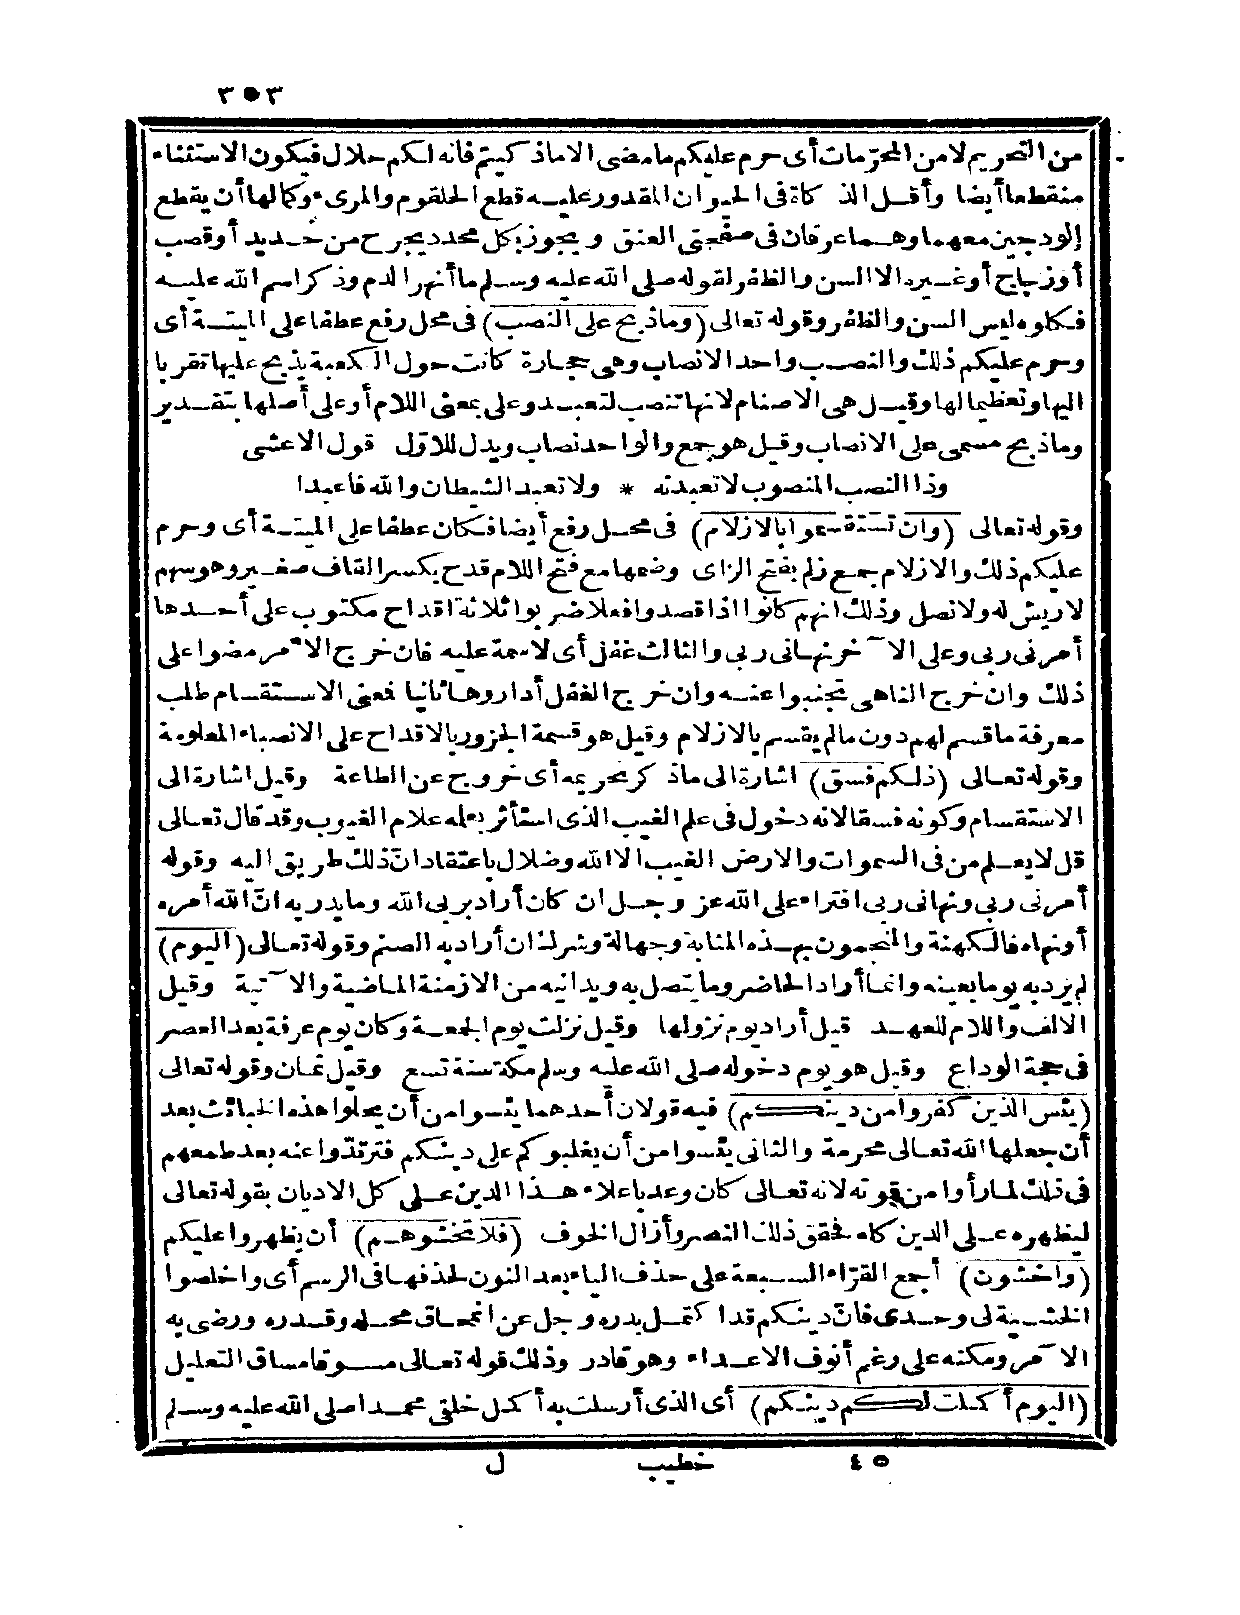 ٣٥٣
من التحريم لا من المحرّمات أى حرم عليكم ما مضى الا ماذكيتم فانه لكم حلال فيكون الاستثناء
منقطعا أيضا وأقل الذكاة فى الحيوان المقدور عليه قطع الحلقوم والمرىء وكمالها أن يقطع
الودجين معهما وهما عرقان فى صفحتى العنق ويجوز بكل محدد يجرح من حديد أو قصب
أو زجاج أو غيره الا السن والظفر لقوله صلى الله عليه وسلم ما أنهر الدم وذكر اسم الله عليه
فكلوه ليس السن والظفر وقوله تعالى (وماذبح على النصب) فى محل رفع عطفا على الميتة أى
وحرم عليكم ذلك والنصب واحد الانصاب وهى حجارة كانت حول الكعبة يذبح عليها تقربا
اليها وتعظيما لها وقيل هى الاصنام لانها تنصب لتعبد وعلى بمعنى اللام أو على أصلها بتقدير
وماذبح مسمى على الانصاب وقيل هو جمع والواحد نصاب ويدل للاوّل قول الاعشى
وذا النصب المنصوب لا تعبدنه * ولا تعبد الشيطان والله فاعبدا
وقوله تعالى (وان تستقسموا بالازلام) فى محل رفع أيضا فكان عطفا على الميتة أى وحرم
عليكم ذلك والازلام جمع زلم بفتح الزاى وضمها مع فتح اللام قدح بكسر القاف صغير وهو سهم
لا ريش له ولا نصل وذلك انهم كانوا اذا قصدوا فعلا ضربوا ثلاثة اقداح مكتوب على أحدها
أمرنى ربى وعلى الآخر نهانى ربى والثالث غفل أى لا سمة عليه فان خرج الامر مضوا على
ذلك وان خرج الناهى تجنبوا عنه وان خرج الغفل أداروها ثانيا فمعنى الاستقسام طلب
معرفة ما قسم لهم دون مالم يقسم بالازلام وقيل هو قسمة الجزور بالاقداح على الانصباء المعلومة
وقوله تعالى (ذلكم فسق) اشارة الى ماذكر تحريمه أى خروج عن الطاعة وقيل اشارة الى
الاستقسام وكونه فسقا لانه دخول فى علم الغيب الذى استأثر بعلمه علام الغيوب وقد قال تعالى
قل لا يعلم من فى السموات والارض الغيب الا الله وضلال باعتقاد انّ ذلك طريق اليه وقوله
أمرنى ربى ونهانى ربى افتراء على الله عز وجل ان كان أراد بربى الله وما يدريه انّ الله أمره
أونهاه فالكهنة والمنجمون بهذه المثابة وجهالة وشرك ان أراد به الصنم وقوله تعالى (اليوم)
لم يرد به يوما بعينه وانما أراد الحاضر وما يتصل به ويدانيه من الازمنة الماضية والآتية وقيل
الالف واللام للعهد قيل أراد يوم نزولها وقيل نزلت يوم الجمعة وكان يوم عرفة بعد العصر
فى حجة الوداع وقيل هو يوم دخوله صلى الله عليه وسلم مكة سنة تسع وقيل ثمان وقوله تعالى
(يئس الذين كفروا من دينكم) فيه قولان أحدهما يئسوا من أن يحلوا هذه الخبائث بعد
أن جعلها الله تعالى محرمة والثانى يئسوا من أن يغلبوكم على دينكم فترتدّوا عنه بعد طمعهم
فى ذلك لما رأوا من قوته لانه تعالى كان وعد باعلاء هذا الدين على كل الاديان بقوله تعالى
ليظهره على الدين كله فحقق ذلك النصر وأزال الخوف (فلا تخشوهم) أن يظهروا عليكم
(واخشون) أجمع القرّاء السبعة على حذف الياء بعد النون لحذفها فى الرسم أى واخلصوا
الخشية لى وحدى فانّ دينكم قد اكتمل بدره وجل عن انمحاق محله وقدره ورضى به
الآمر ومكنه على رغم أنوف الاعداء وهو قادر وذلك قوله تعالى مسوقا مساق التعليل
(اليوم أكملت لكم دينكم) أى الذى أرسلت به أكمل خلقى محمدا صلى الله عليه وسلم
٤٥ خطيب ل